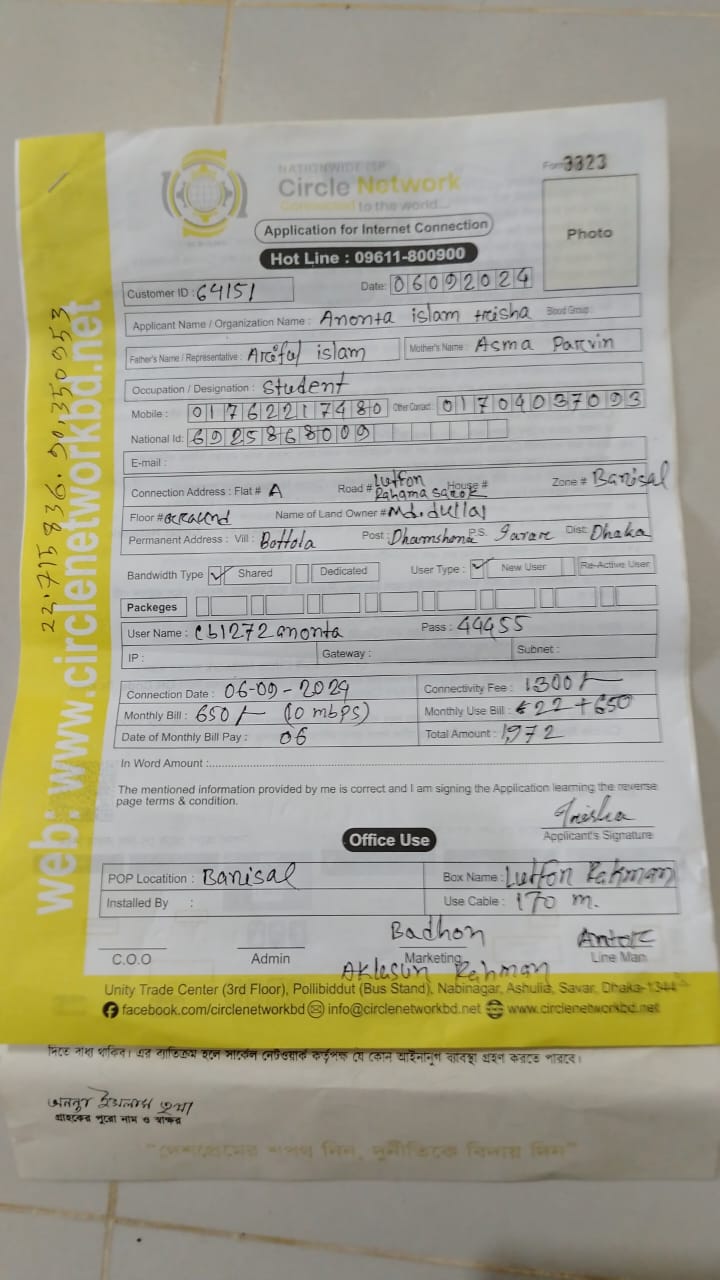 NATIONWIDE ISP
Circle Network
Connected to the world...
Form 3323
Application for Internet Connection
Hot Line : 09611-800900
Photo
Customer ID : 64151 Date: 06092024
Applicant Name / Organization Name : Anonta islam trisha Blood Group :
Father's Name / Representative : Ariful islam Mother's Name : Asma Parvin
Occupation / Designation : Student
Mobile : 01762217480 Other Contact : 01704037093
National Id: 6925868009
E-mail :
Connection Address : Flat # A Road # Lutfon Rahama sarok House # Zone # Banisal
Floor # Name of Land Owner # Md. dullal
Permanent Address : Vill : Bottola Post : Dhamshona P.S. Dist: Dhaka
Bandwidth Type ✓ Shared Dedicated User Type : ✓ New User Re-Active User
Packeges
User Name : cb1272anonta Pass : 44455
IP : Gateway : Subnet :
Connection Date : 06-09-2024 Connectivity Fee : 1300/-
Monthly Bill : 650/- (10 mbps) Monthly Use Bill : 22+650
Date of Monthly Bill Pay : 06 Total Amount : 1,972
In Word Amount :
The mentioned information provided by me is correct and I am signing the Application learning the reverse
page terms & condition.
Trisha
Applicant's Signature
Office Use
POP Locatition : Banisal Box Name : Lutfon Rahman
Installed By : Use Cable : 170 m.
Badhon
C.O.O Admin Marketing Line Man
Rehman
Unity Trade Center (3rd Floor), Pollibiddut (Bus Stand), Nabinagar, Ashulia, Savar, Dhaka-1344
facebook.com/circlenetworkbd info@circlenetworkbd.net www.circlenetworkbd.net
web: www.circlenetworkbd.net
23.715836.90,350953
দিতে বাধ্য থাকিব। এর ব্যতিক্রম হলে সার্কেল নেটওয়ার্ক কর্তৃপক্ষ যে কোন আইনানুগ ব্যবস্থা গ্রহণ করতে পারবে।
অনন্তা ইসলাম তৃষা
গ্রাহকের পুরো নাম ও স্বাক্ষর
"দেশপ্রেমের শপথ নিন, দুর্নীতিকে বিদায় দিন"